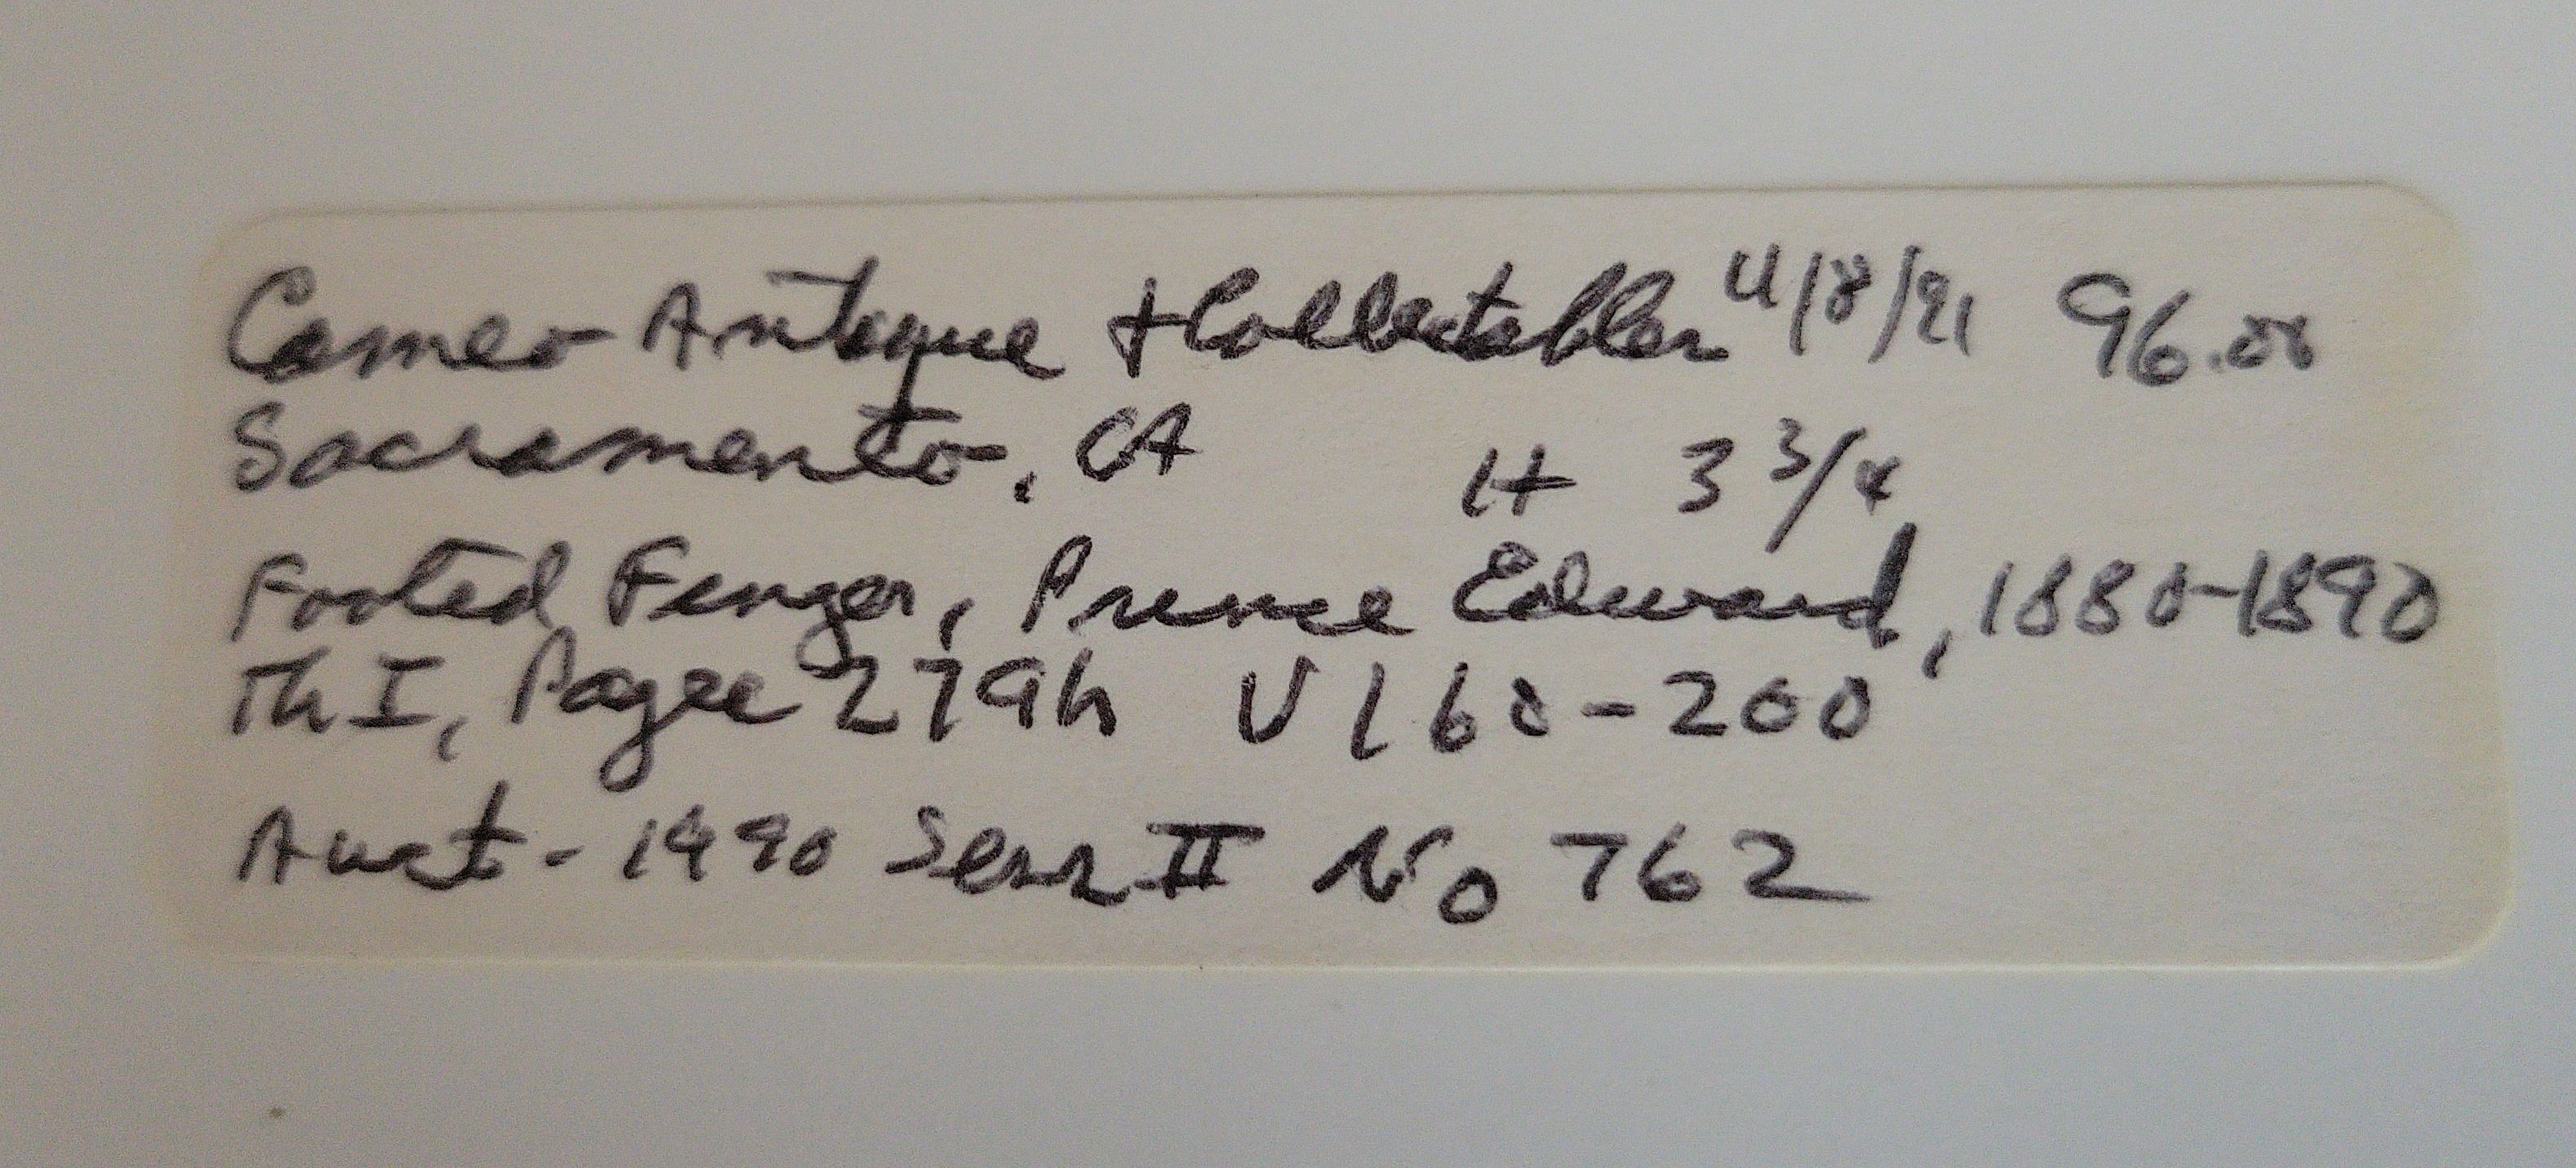 Cameo Antique + Collectables 4/8/91 96.00
Sacramento, CA H 3 3/4
Footed Finger, Prince Edward, 1880-1890
Th I, Page 279h V 160-200
Auct- 1990 Sess II No 762